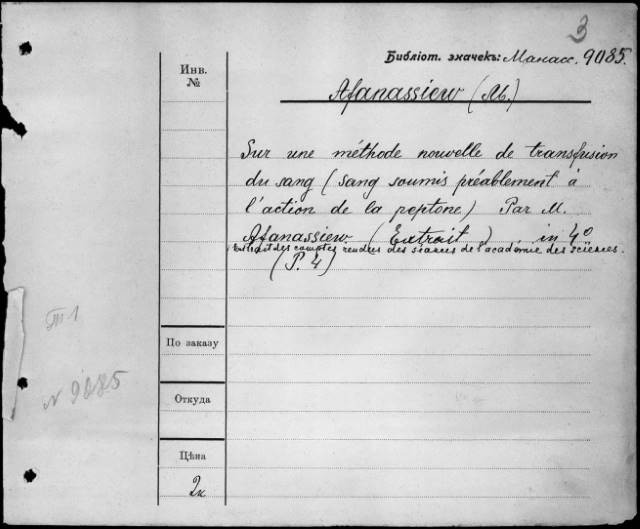 3
Библіот. значекъ: Манасс. 9085.
Инв.
№
Afanassiew (M.)
Sur une méthode nouvelle de transfusion
du sang (sang soumis préablement à
l'action de la peptone) Par M.
Afanassiew. (Extrait) in 4°
Extrait des comptes rendus des séances de l'académie des sciences.
(P. 4)
По заказу
N 9085
Откуда
Цѣна
2к